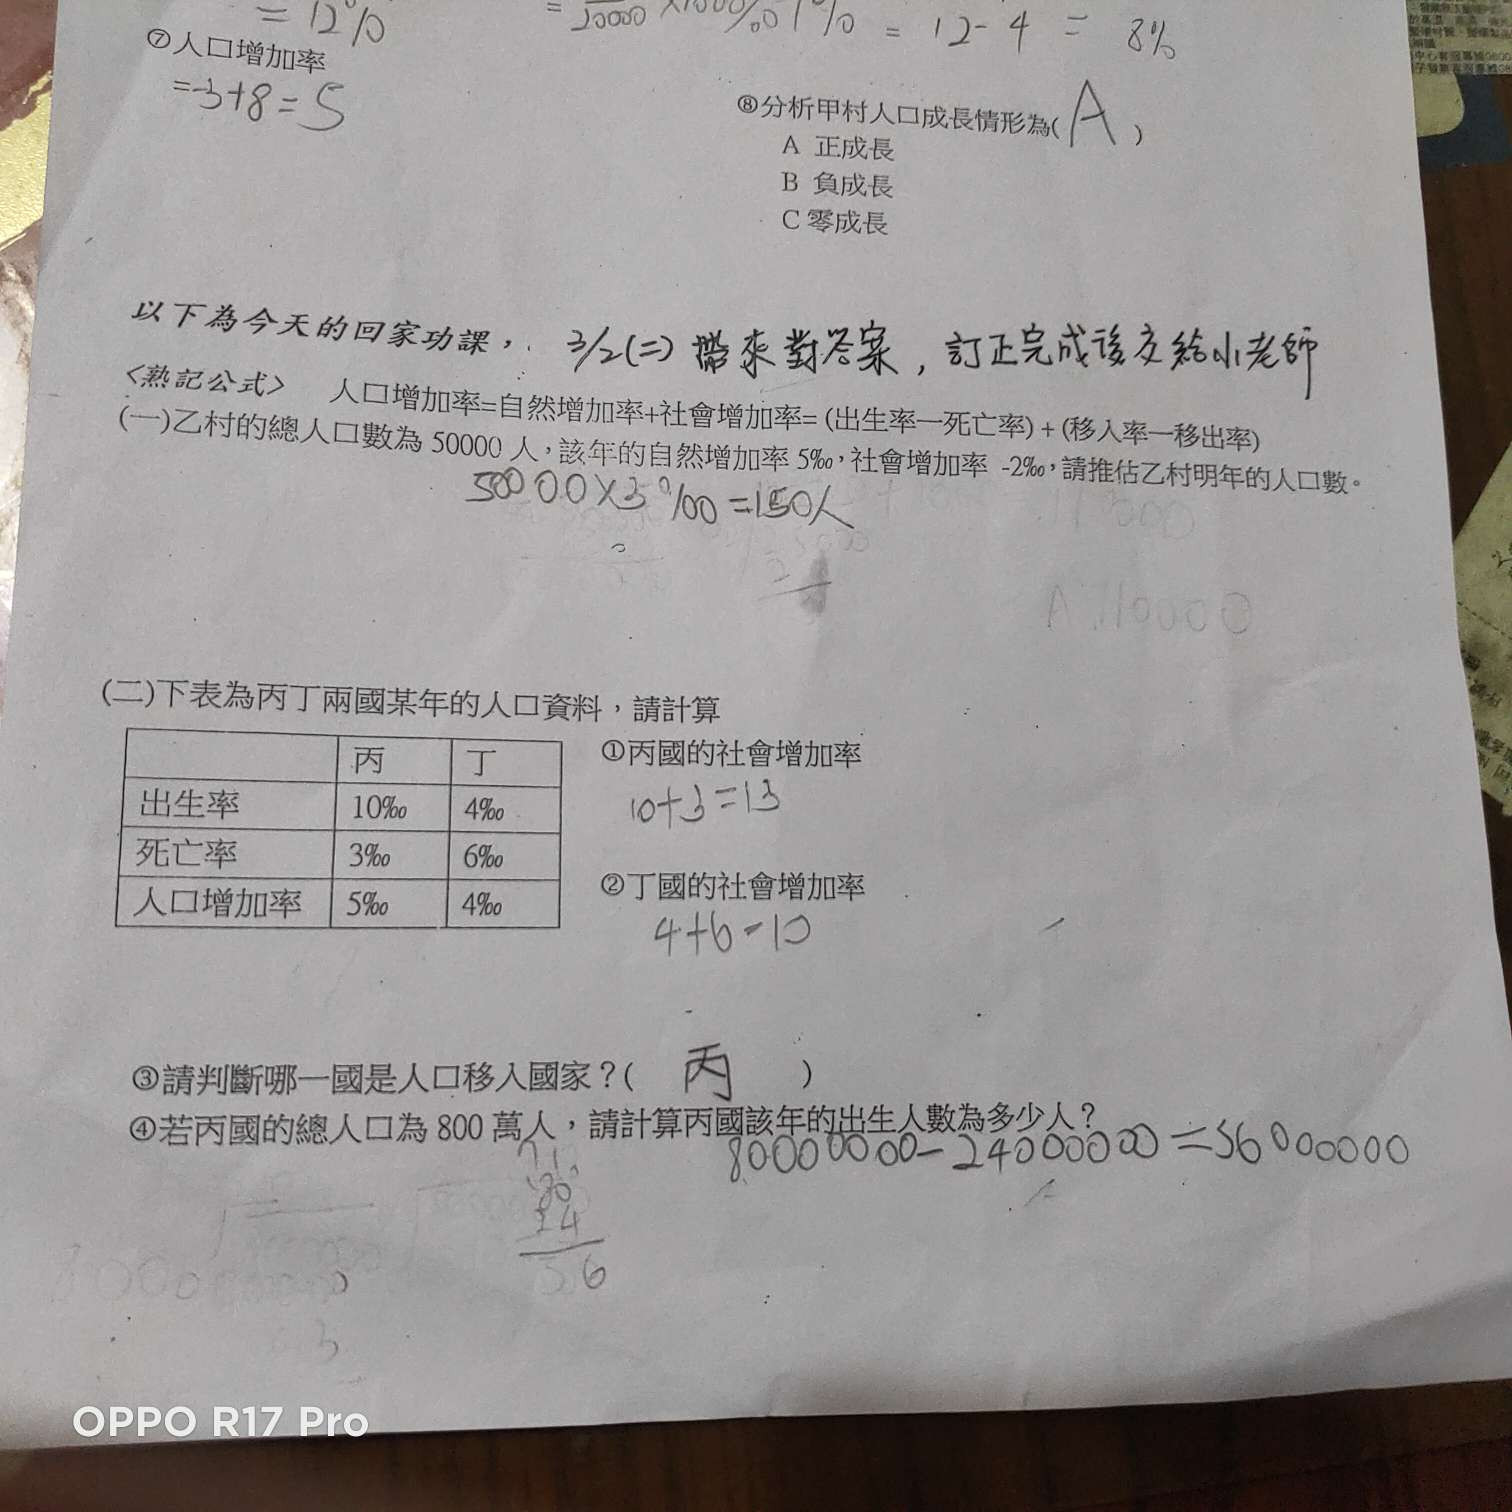 = 12%
= 20000 ×1000‰ 1% = 12-4 = 8%
⑦人口增加率
=-3+8=5
⑧分析甲村人口成長情形為( A )
A 正成長
B 負成長
C 零成長
以下為今天的回家功課， 3/2(二)帶來對答案，訂正完成後交給小老師
<熟記公式> 人口增加率=自然增加率+社會增加率=(出生率—死亡率)+(移入率—移出率)
(一)乙村的總人口數為 50000 人，該年的自然增加率 5‰，社會增加率 -2‰，請推估乙村明年的人口數。
50000×3%00=150人
A 110000
(二)下表為丙丁兩國某年的人口資料，請計算
丙 丁
出生率 10‰ 4‰
死亡率 3‰ 6‰
人口增加率 5‰ 4‰
①丙國的社會增加率
10+3=13
②丁國的社會增加率
4+6=10
③請判斷哪一國是人口移入國家？( 丙 )
④若丙國的總人口為 800 萬人，請計算丙國該年的出生人數為多少人？
80000000-24000000=56000000
80
24
56
OPPO R17 Pro